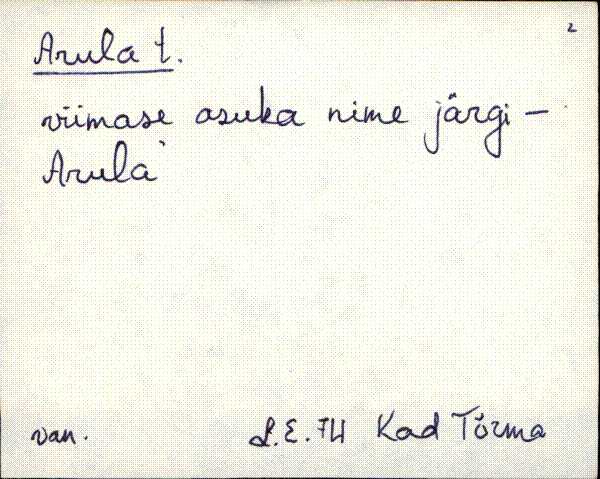 2
Arula t.
viimase asuka nime järgi –
Arula
van. L.E. 74 Kad Tõrma